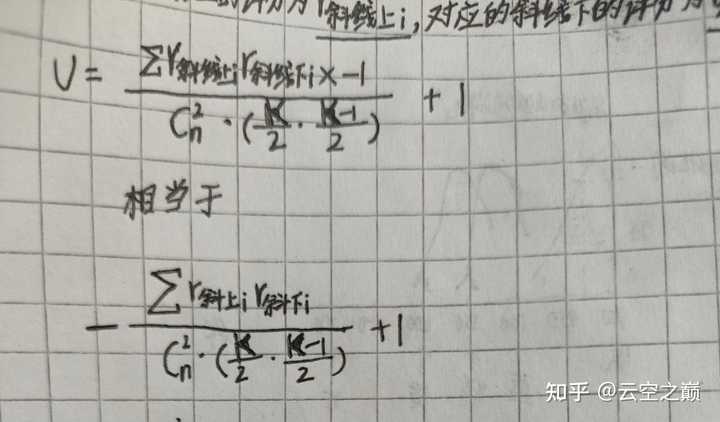 r斜线上i,对应的斜线下的评分为
U = \frac{\sum r_{斜线上i} r_{斜线下i} \times -1}{C_n^2 \cdot (\frac{K}{2} \cdot \frac{K-1}{2})} + 1
相当于
- \frac{\sum r_{斜上i} r_{斜下i}}{C_n^2 \cdot (\frac{K}{2} \cdot \frac{K-1}{2})} + 1
知乎 @云空之巅